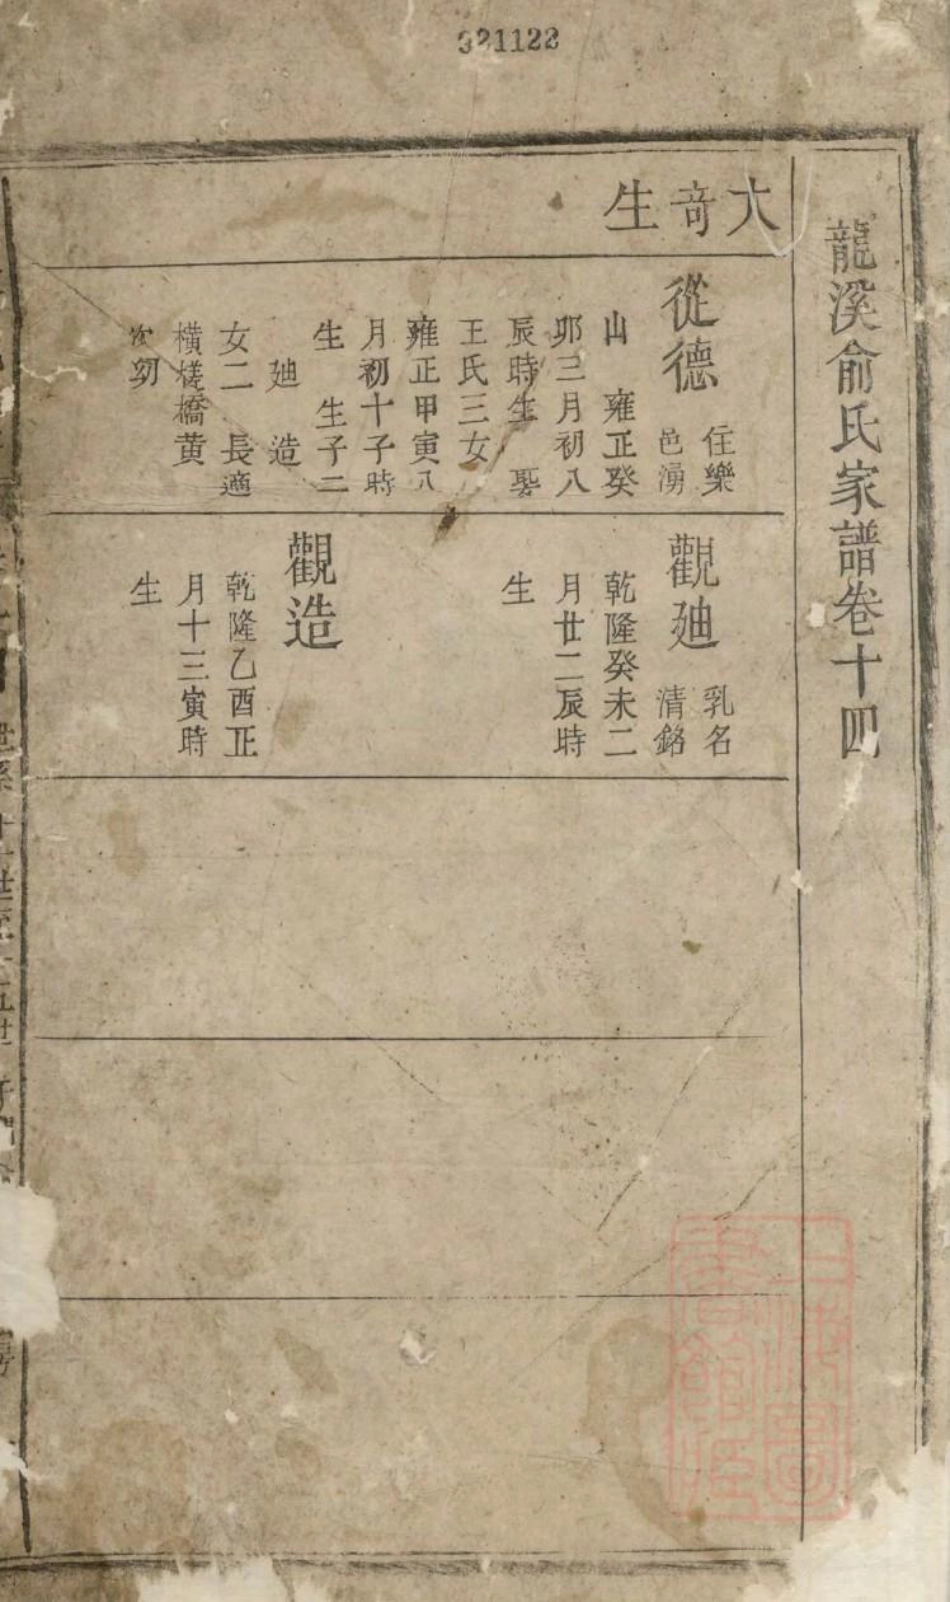 321122
龍溪俞氏家譜卷十四
大竒生
從德
住樂
邑湧
山 雍正癸
卯三月初八
辰時生 娶
王氏三女
雍正甲寅八
月初十子時
生 生子二
廸 造
女二 長適
橫槎橋黄
次㓜
觀廸
乳名
清銘
乾隆癸未二
月廿二辰時
生
觀造
乾隆乙酉正
月十三寅時
生
上海圖
書館藏